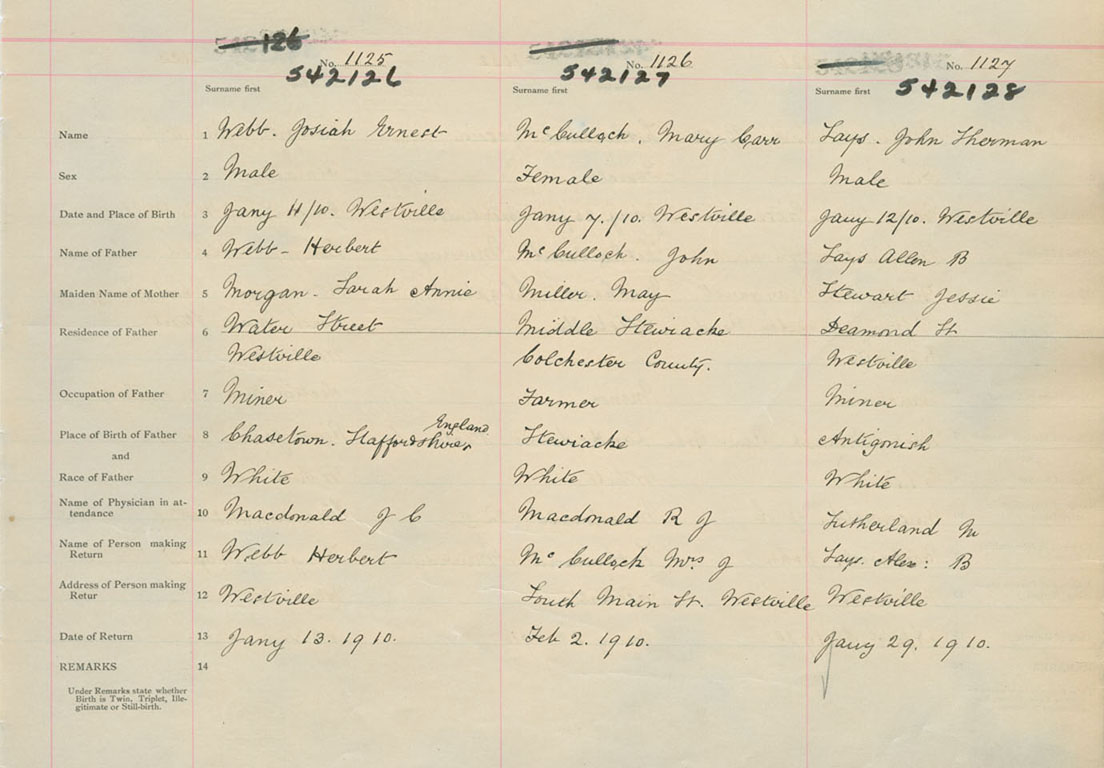 126
No. 1125 No. 1126 No. 1127
542126 542127 542128
Surname first Surname first Surname first
Name 1 Webb. Josiah Ernest McCulloch. Mary Carr Lays. John Sherman
Sex 2 Male Female Male
Date and Place of Birth 3 Jany 11/10. Westville Jany 7./10 Westville Jany 12/10. Westville
Name of Father 4 Webb - Herbert McCulloch. John Lays Allen B
Maiden Name of Mother 5 Morgan - Sarah Annie Miller. May Stewart Jessie
Residence of Father 6 Water Street Middle Stewiacke Deamond St
Westville Colchester County. Westville
Occupation of Father 7 Miner Farmer Miner
England
Place of Birth of Father 8 Chasetown. Staffordshire Stewiacke Antigonish
and
Race of Father 9 White White White
Name of Physician in at-
tendance 10 Macdonald J C Macdonald R J Sutherland M
Name of Person making
Return 11 Webb Herbert McCulloch Mrs J Lays. Alex: B
Address of Person making
Retur 12 Westville South Main St. Westville Westville
Date of Return 13 Jany 13. 1910. Feb 2. 1910. Jany 29. 1910.
REMARKS 14
Under Remarks state whether
Birth is Twin, Triplet, Ille-
gitimate or Still-birth.